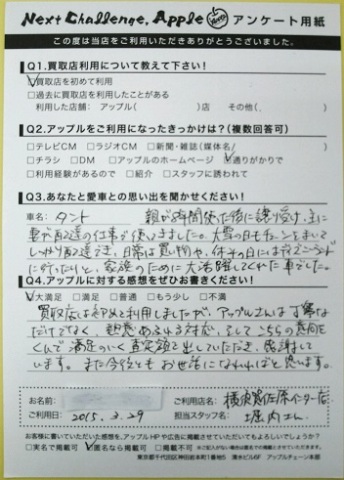 Next Challenge. Apple アンケート用紙
この度は当店をご利用いただきありがとうございました。
Q1.買取店利用について教えて下さい!
☑買取店を初めて利用
□過去に買取店を利用したことがある
利用した店舗: アップル( )店 その他( )
Q2.アップルをご利用になったきっかけは?(複数回答可)
□テレビCM □ラジオCM □新聞・雑誌(媒体名/ )
□チラシ □DM □アップルのホームページ ☑通りがかりで
□利用経験があるので □紹介 □スタッフに誘われて
Q3.あなたと愛車との思い出を聞かせください!
車名: タント 親が8年間使った後に譲り受け、主に
妻が配達の仕事で使いましました。大雪の日もチェーンをまいて
しっかり配達でき、日常は買い物や、休みの日には
に行ったりと、家族のために大活躍してくれた車でした。
Q4.アップルに対する感想をぜひお書きください!
☑大満足 □満足 □普通 □もう少し □不満
買取店は初めて利用しましたが、アップルさんは丁寧な
だけでなく、熱意あふれる対応、そしてこちらの意向を
くんで満足のいく査定額を出していただき、感謝して
います。また今後ともお世話になれればと思います。
お名前: ご利用店名: 横須賀佐原インター店
ご利用日: 2015.3.29 担当スタッフ名: 堀内さん
お客様に書いていただいた感想を、アップルHPや広告に掲載させていただいてもよろしいでしょうか?
□実名で掲載可 ☑匿名なら掲載可 □不可
東京都千代田区神田岩本町1番地5 清水ビル6F アップルチェーン本部